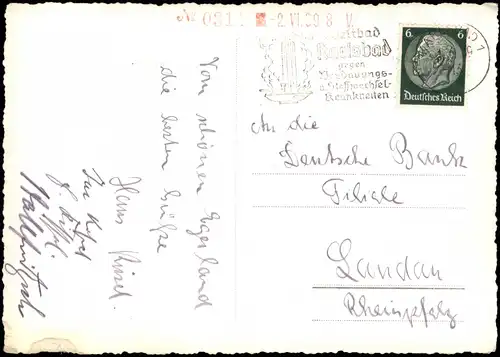 Nr 031
-2.VI.39 8 V.
Weltbad
Karlsbad
gegen
Verdauungs-
u. Stoffwechsel-
Krankheiten
6 6
Deutsches Reich
An die
Deutsche Bank
Filiale
Landau
Rheinpfalz
Vom schönen Egerland
die besten Grüße
Hans